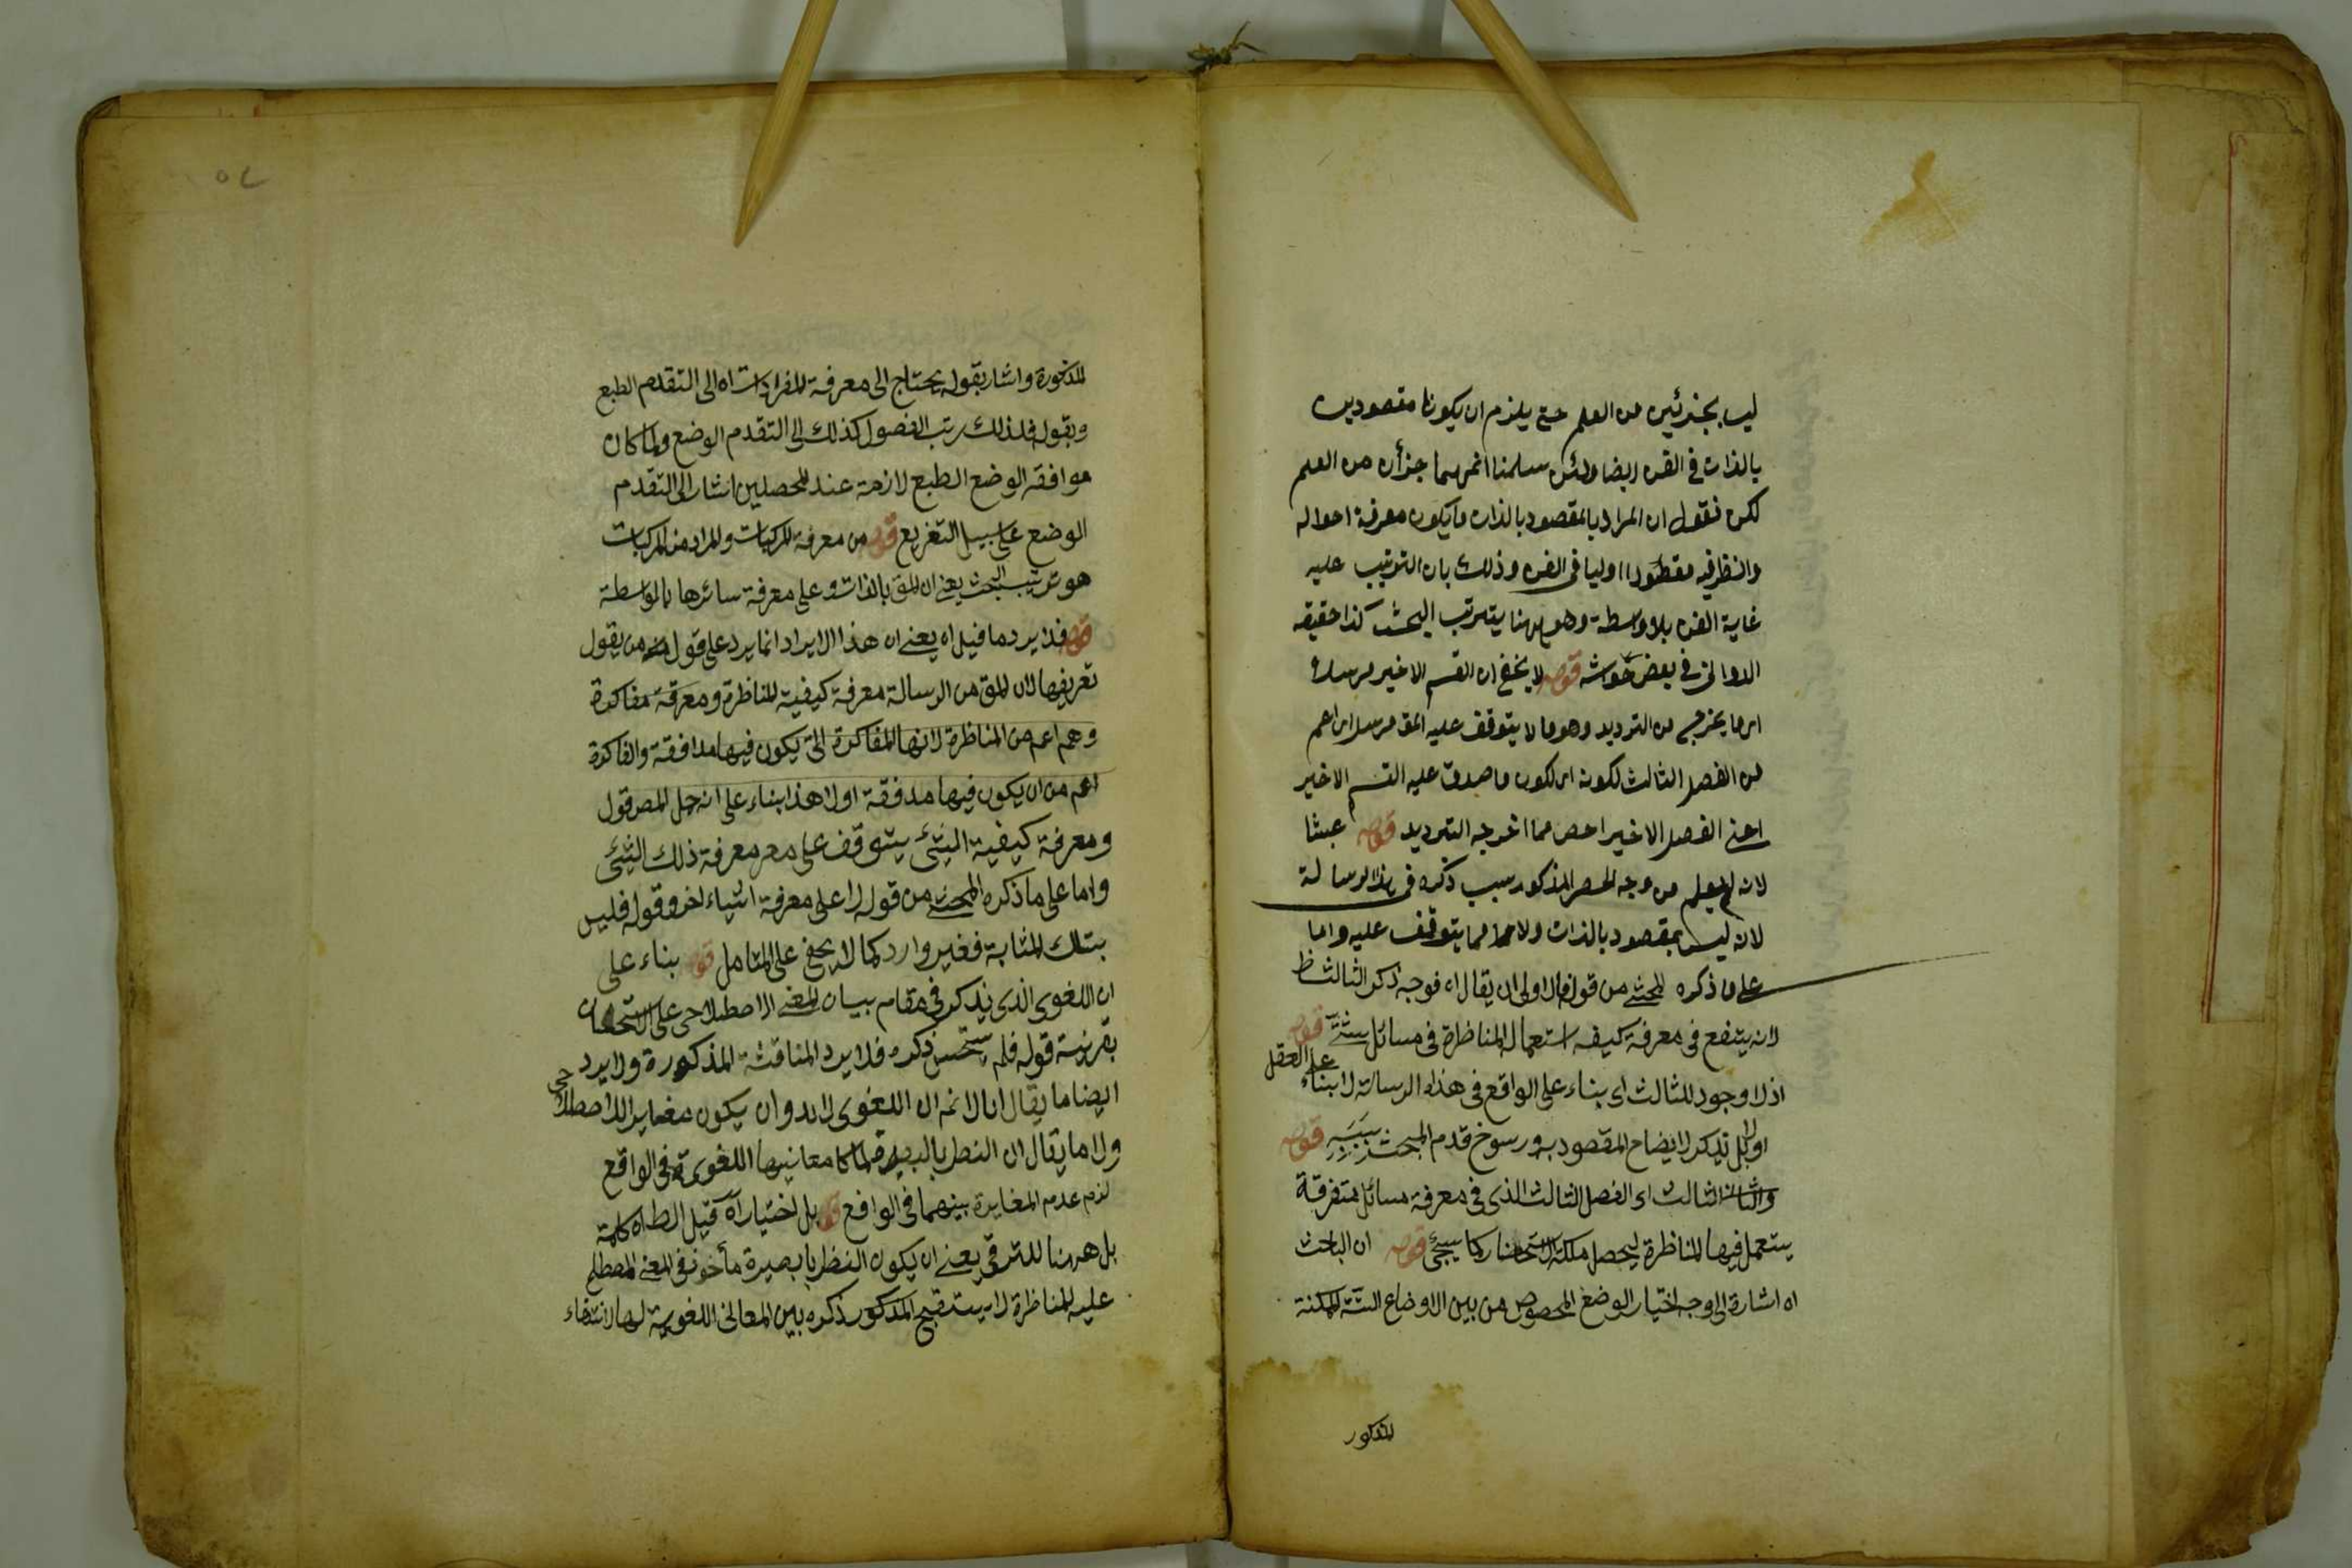 ليسا بجزئين من العلم حتى يلزم ان يكونا مقصودين
بالذات في الفن ايضا ولئن سلمنا انهما جزأن من العلم
لكن نقول ان المراد بالمقصود بالذات ما يكون معرفة احواله
والنظر فيه مقصودا اوليا في الفن وذلك بان الترتيب عليه
غاية الفن بلا واسطة وهو ههنا يترتب البحث كذا حققه
الدواني في بعض حواشه قوله لا يخفى ان القسم الاخير مرسلا
اى ما يخرج من الترديد وهو ما لا يتوقف عليه المقـ مرسلا اى اعم
من الفصل الثالث لكونه اى لكون ما صدق عليه القسم الاخير
اعنى الفصل الاخير اخص مما اخرجه الترديد قوله عبثا
لانه لم يعلم من وجه الحصر المذكور سبب ذكره فى هذا الرسالة
لانه ليس بمقصود بالذات ولا مما يتوقف عليه واما
على ما ذكره المحشى من قوله فالاولى ان يقال اه فوجه ذكر الثالث ظ
لانه ينفع فى معرفة كيفيه استعمال المناظرة فى مسائل شتى قوله
اذ لا وجود للثالث اى بناء على الواقع فى هذه الرسالة لا بناء على العقل
او لا بل تذكر لايضاح المقصود به ورسوخ قدم المبحث قوله
والثالث اى الفصل الثالث الذى فى معرفة مسائل متفرقة
يستعمل فيها المناظرة ليحصل ملكة الاستحضار كما سيجئ قوله ان الباحث
اه اشارة الى وجه اختيار الوضع المخصوص من بين الاوضاع الستة الممكنة
المذكور
المذكورة واشار بقوله يحتاج الى معرفة المفردات اه الى التقدم الطبع
وبقوله فلذلك رتب الفصول كذلك الى التقدم الوضع ولما كان
موافقه الوضع الطبع لازمة عند المحصلين اشار الى التقدم
الوضع على سبيل التفريع قوله من معرفة المركبات والمراد من المركبات
هو ترتيب البحث يعنى ان المقـ بالذات وعلى معرفة سائرها بالواسطة
قوله فلا يرد ما قيل اه يعنى ان هذا الايراد انما يرد على قول من يقول
تعريفها لان المقـ من الرسالة معرفة كيفية المناظرة ومعرفة مفاكرة
وهم اعم من المناظرة لانها المفاكرة التى يكون فيها مدافقة والفاكرة
اعم من ان يكون فيها مدفقة اولا هذا بناء على انه حمل المص قول
ومعرفة كيفية الشئ يتوقف على معرفة ذلك الشئ
واما على ما ذكره المحشى من قوله لا على معرفة اشياء اخر وقوله فليس
بتلك المثابة فغير وارد كما لا يخفى على المتامل قوله بناء على
ان اللغوى الذى يذكر فى مقام بيان المعنى الاصطلاحى على الاستحسان
بقرينة قوله فلم يستحسن ذكره فلا يرد المناقشة المذكورة ولا يرد
ايضا ما يقال انا لا نم ان اللغوى لا بد وان يكون مغاير الاصطلاحى
ولا ما يقال ان النظر بالبصيرة لما كا معانيها اللغوية فى الواقع
لزم عدم المغايرة بينهما فى الواقع قوله بل اختياره قيل الظ اه كلمة
بل ههنا للترقى يعنى ان يكون النظر بالبصيرة مأخوذ فى المعنى المصطلح
عليه للمناظرة لا يستقبح المذكور ذكره بين المعانى اللغوية لها لانتفاء